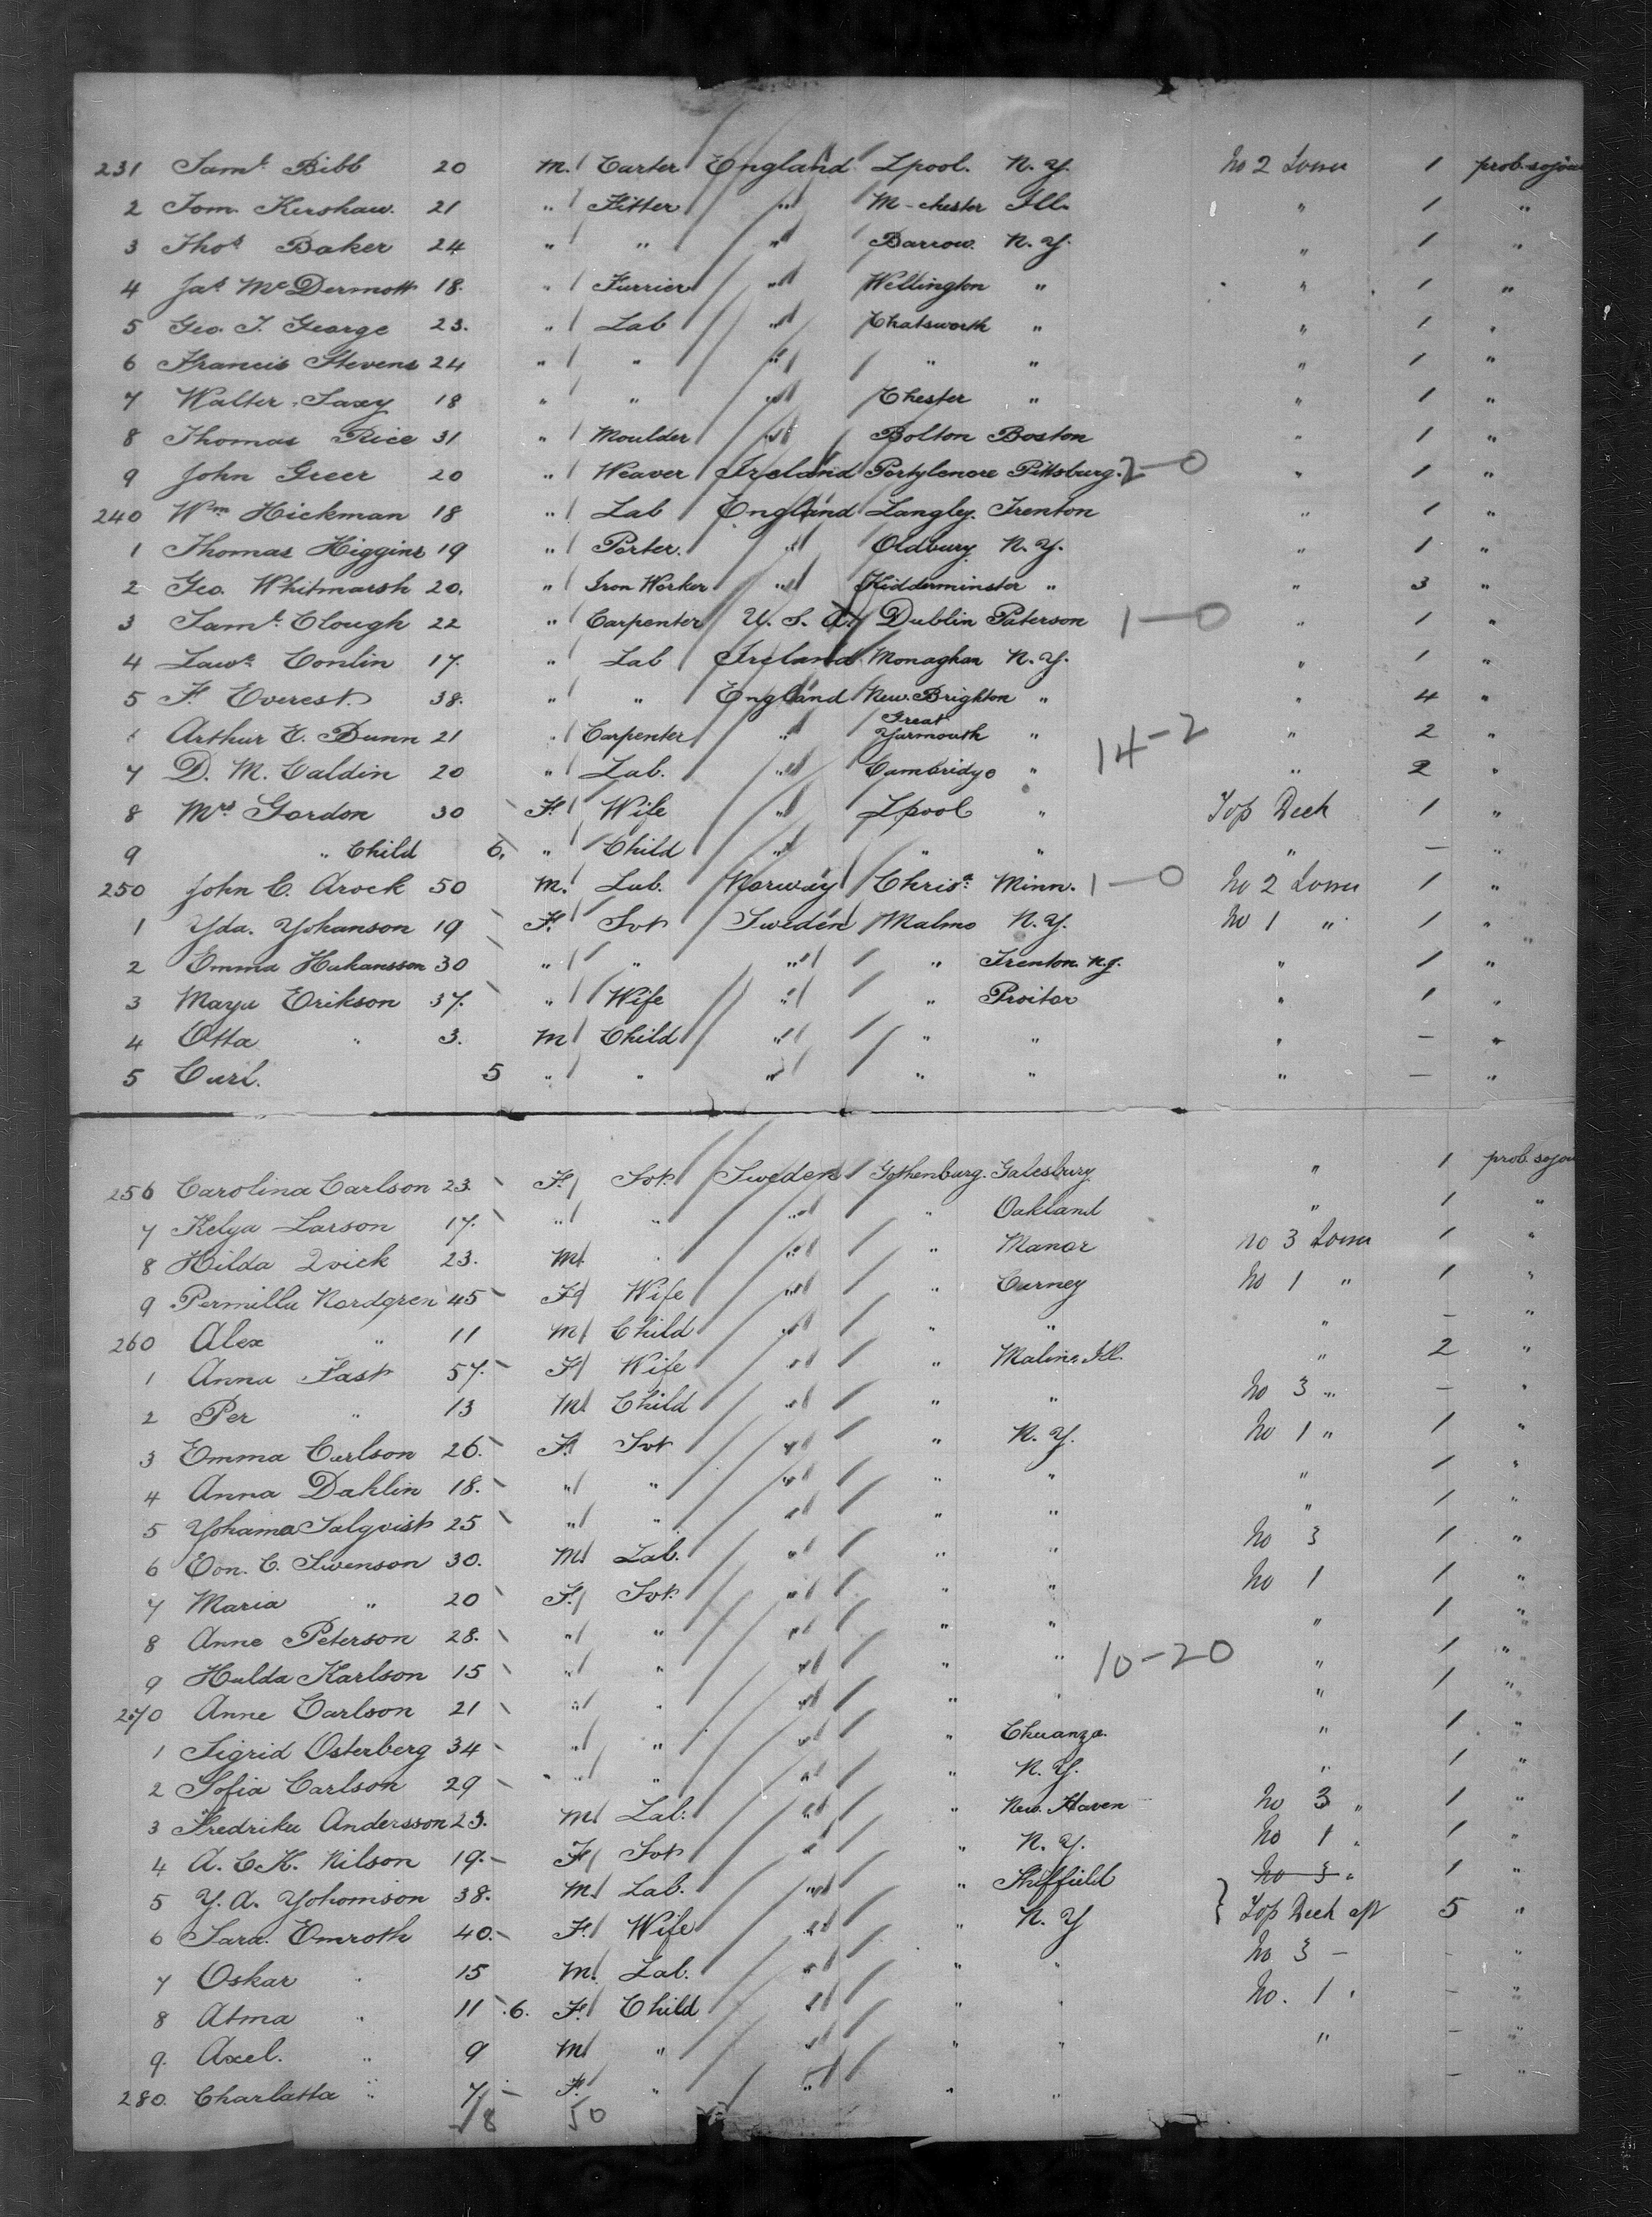 231 Saml. Bibb 20 M. Carter England Lpool. N.Y. No 2 Lower 1 prob. sojou
2 Tom. Kershaw. 21 " Fitter " M-chester Ill. " 1 "
3 Thos. Baker 24 " " " Barrow. N.Y. " 1 "
4 Jas. McDermott 18. " Furrier " Wellington " " 1 "
5 Geo. T. George 23. " Lab " Chatsworth " " 1 "
6 Francis Stevens 24 " " " " " " 1 "
7 Walter Saxy 18 " " " Chester " " 1 "
8 Thomas Rice 31 " Moulder " Bolton Boston " 1 "
9 John Greer 20 " Weaver Ireland Portylenore Pittsburg. 2-0 " 1 "
240 Wm Hickman 18 " Lab England Langley. Trenton " 1 "
1 Thomas Higgins 19 " Porter. " Oldbury N.Y. " 1 "
2 Geo. Whitmarsh 20. " Iron Worker " Kidderminster " " 3 "
3 Saml. Clough 22 " Carpenter U.S.A. Dublin Paterson 1-0 " 1 "
4 Lawc. Conlin 17. " Lab Ireland Monaghan N.Y. " 1 "
5 F. Everest. 38. " " England New Brighton " " 4 "
Arthur E. Bunn 21 " Carpenter " Great Yarmouth " 14-2 " 2 "
7 D. M. Caldin 20 " Lab. " Cambridge " " 2 "
8 Mrs Gordon 30 F. Wife " Lpool " Top Deck 1 "
9 " Child 6. " Child " " " " — "
250 John C. Arock 50 M. Lab. Norway Chrisa. Minn. 1-0 No 2 Lower 1 "
1 Yda. Yohanson 19 F. Svt Sweden Malmo N.Y. No 1 " 1 "
2 Emma Hakansson 30 " " " " Trenton N.J. " 1 "
3 Maya Erikson 37. " Wife " " Proitor " 1 "
4 Otta " 3. M Child " " " " — "
5 Carl. 5 " " " " " " — "
256 Carolina Carlson 23. F. Svt. Sweden Gothenburg. Galesbury " 1 prob. sojou
7 Kelya Larson 17. " " " " Oakland " 1 "
8 Hilda Qvick 23. M. " " " Manor No 3 Lower 1 "
9 Permilla Nordgren 45 F. Wife " " Carney No 1 " 1 "
260 Alex " 11 M. Child " " " " — "
1 Anna Fast 57. F. Wife " " Maline Ill. " 2 "
2 Per " 13 M. Child " " " No 3 " — "
3 Emma Carlson 26. F. Svt " " N.Y. No 1 " 1 "
4 Anna Dahlin 18. " " " " " " 1 "
5 Yohama Salqvist 25 " " " " " " 1 "
6 Eon. C. Swenson 30. M. Lab. " " " No 3 1 "
7 Maria " 20 F. Svt. " " " No 1 1 "
8 Anne Peterson 28. " " " " " " 1 "
9 Hulda Karlson 15 " " " " " 10-20 " 1 "
270 Anne Carlson 21 " " " " " " 1 "
1 Sigrid Osterberg 34 " " " " Chuanza. " 1 "
2 Sofia Carlson 29 " " " " N.Y. " 1 "
3 Fredrika Andersson 23. M. Lab. " " New Haven No 3 " 1 "
4 A.C.K. Nilson 19. F. Svt " " N.Y. No 1 " 1 "
5 Y.A. Yohomison 38. M. Lab. " " Shiffield No 3 " 1 "
6 Sara. Emroth 40. F. Wife " " N.Y Top Deck aft 5 "
7 Oskar " 15 M. Lab. " " " No 3 - - "
8 Atma " 11 .6. F. Child " " " No. 1 " - "
9. Axel. " 9 M " " " " " — "
280. Charlatta " 7 F. " " " " — "
18 50